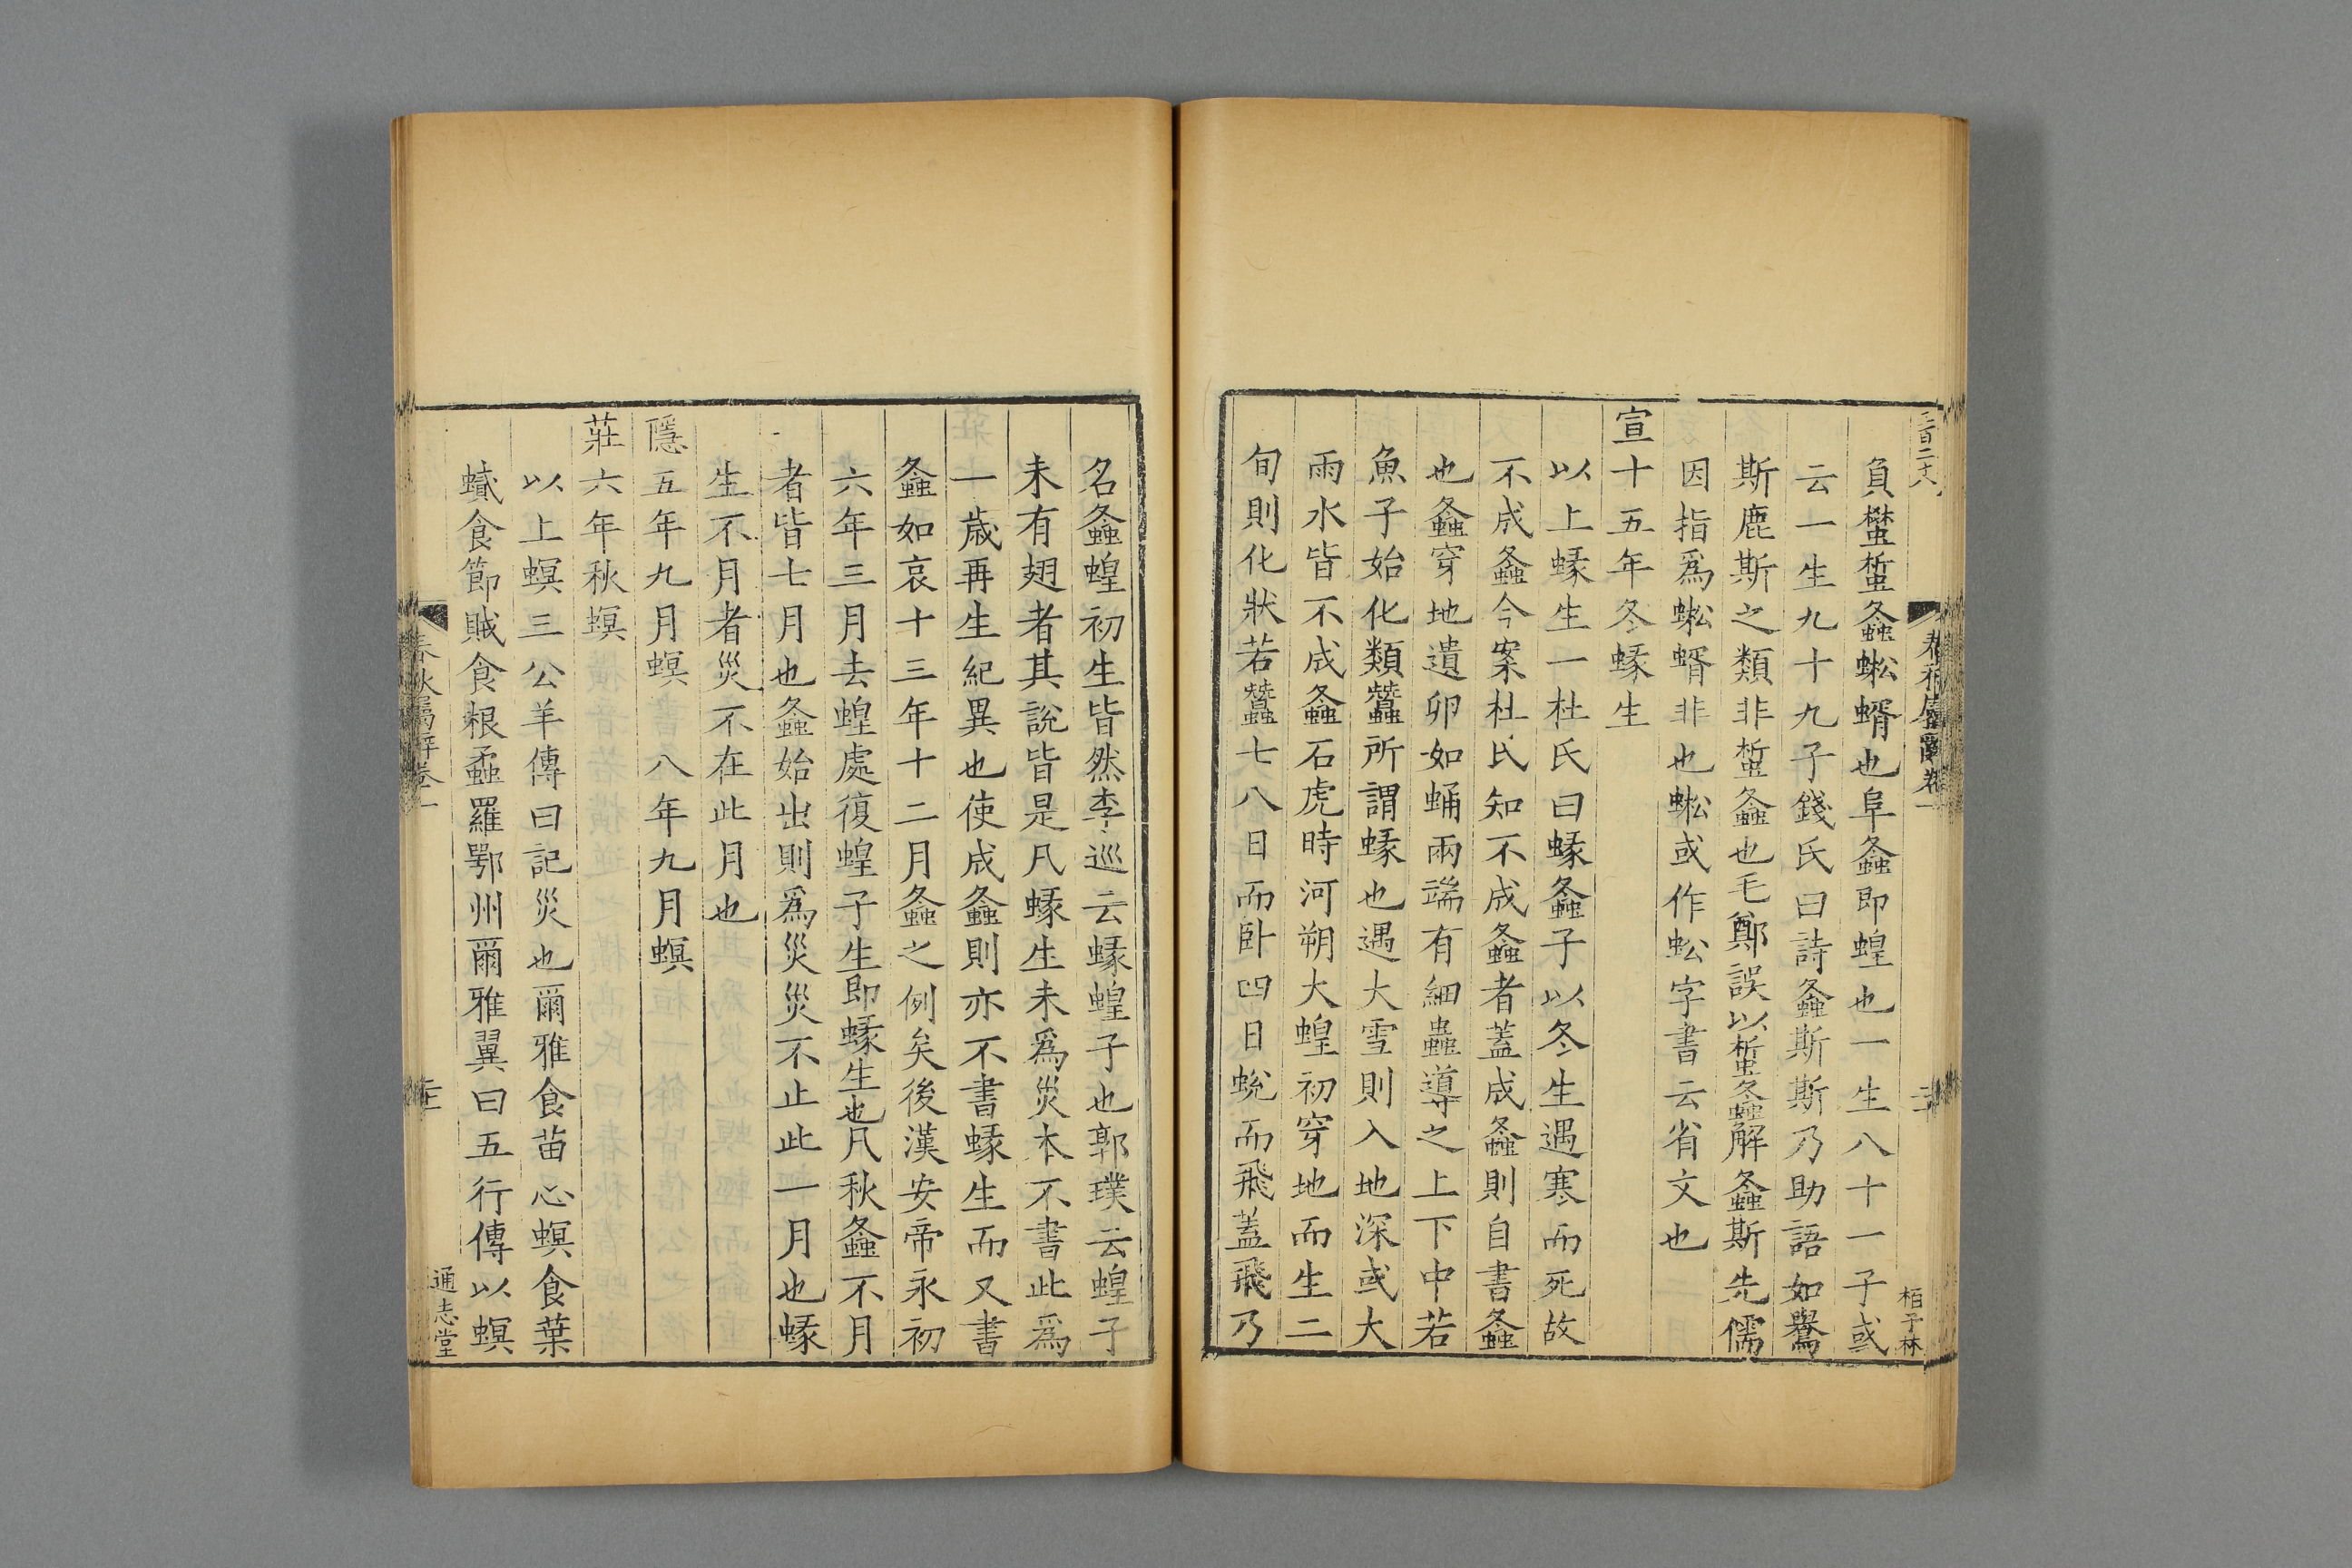 負蠜蜤螽蜙蝑也阜螽即蝗也一生八十一子或
云一生九十九子錢氏曰詩螽斯斯乃助語如鸒
斯鹿斯之類非蜤螽也毛鄭誤以蜤螽解螽斯先儒
因指爲蜙蝑非也蜙或作蚣字書云省文也
宣十五年冬蝝生
以上蝝生一杜氏曰蝝螽子以冬生遇寒而死故
不成螽今案杜氏知不成螽者蓋成螽則自書螽
也螽穿地遺卵如蛹兩端有細蟲導之上下中若
魚子始化類蠶所謂蝝也遇大雪則入地深或大
雨水皆不成螽石虎時河朔大蝗初穿地而生二
旬則化狀若蠶七八日而卧四日蛻而飛蓋飛乃
名螽蝗初生皆然李巡云蝝蝗子也郭璞云蝗子
未有翅者其說皆是凡蝝生未爲災本不書此爲
一歲再生紀異也使成螽則亦不書蝝生而又書
螽如哀十三年十二月螽之例矣後漢安帝永初
六年三月去蝗處復蝗子生即蝝生也凡秋螽不月
者皆七月也螽始出則爲災災不止此一月也蝝
生不月者災不在此月也
隱五年九月螟　八年九月螟
莊六年秋螟
以上螟三公羊傳曰記災也爾雅食苗心螟食葉
蟘食節賊食根蟊羅鄂州爾雅翼曰五行傳以螟
春秋屬辭卷一
通志堂
柏子林